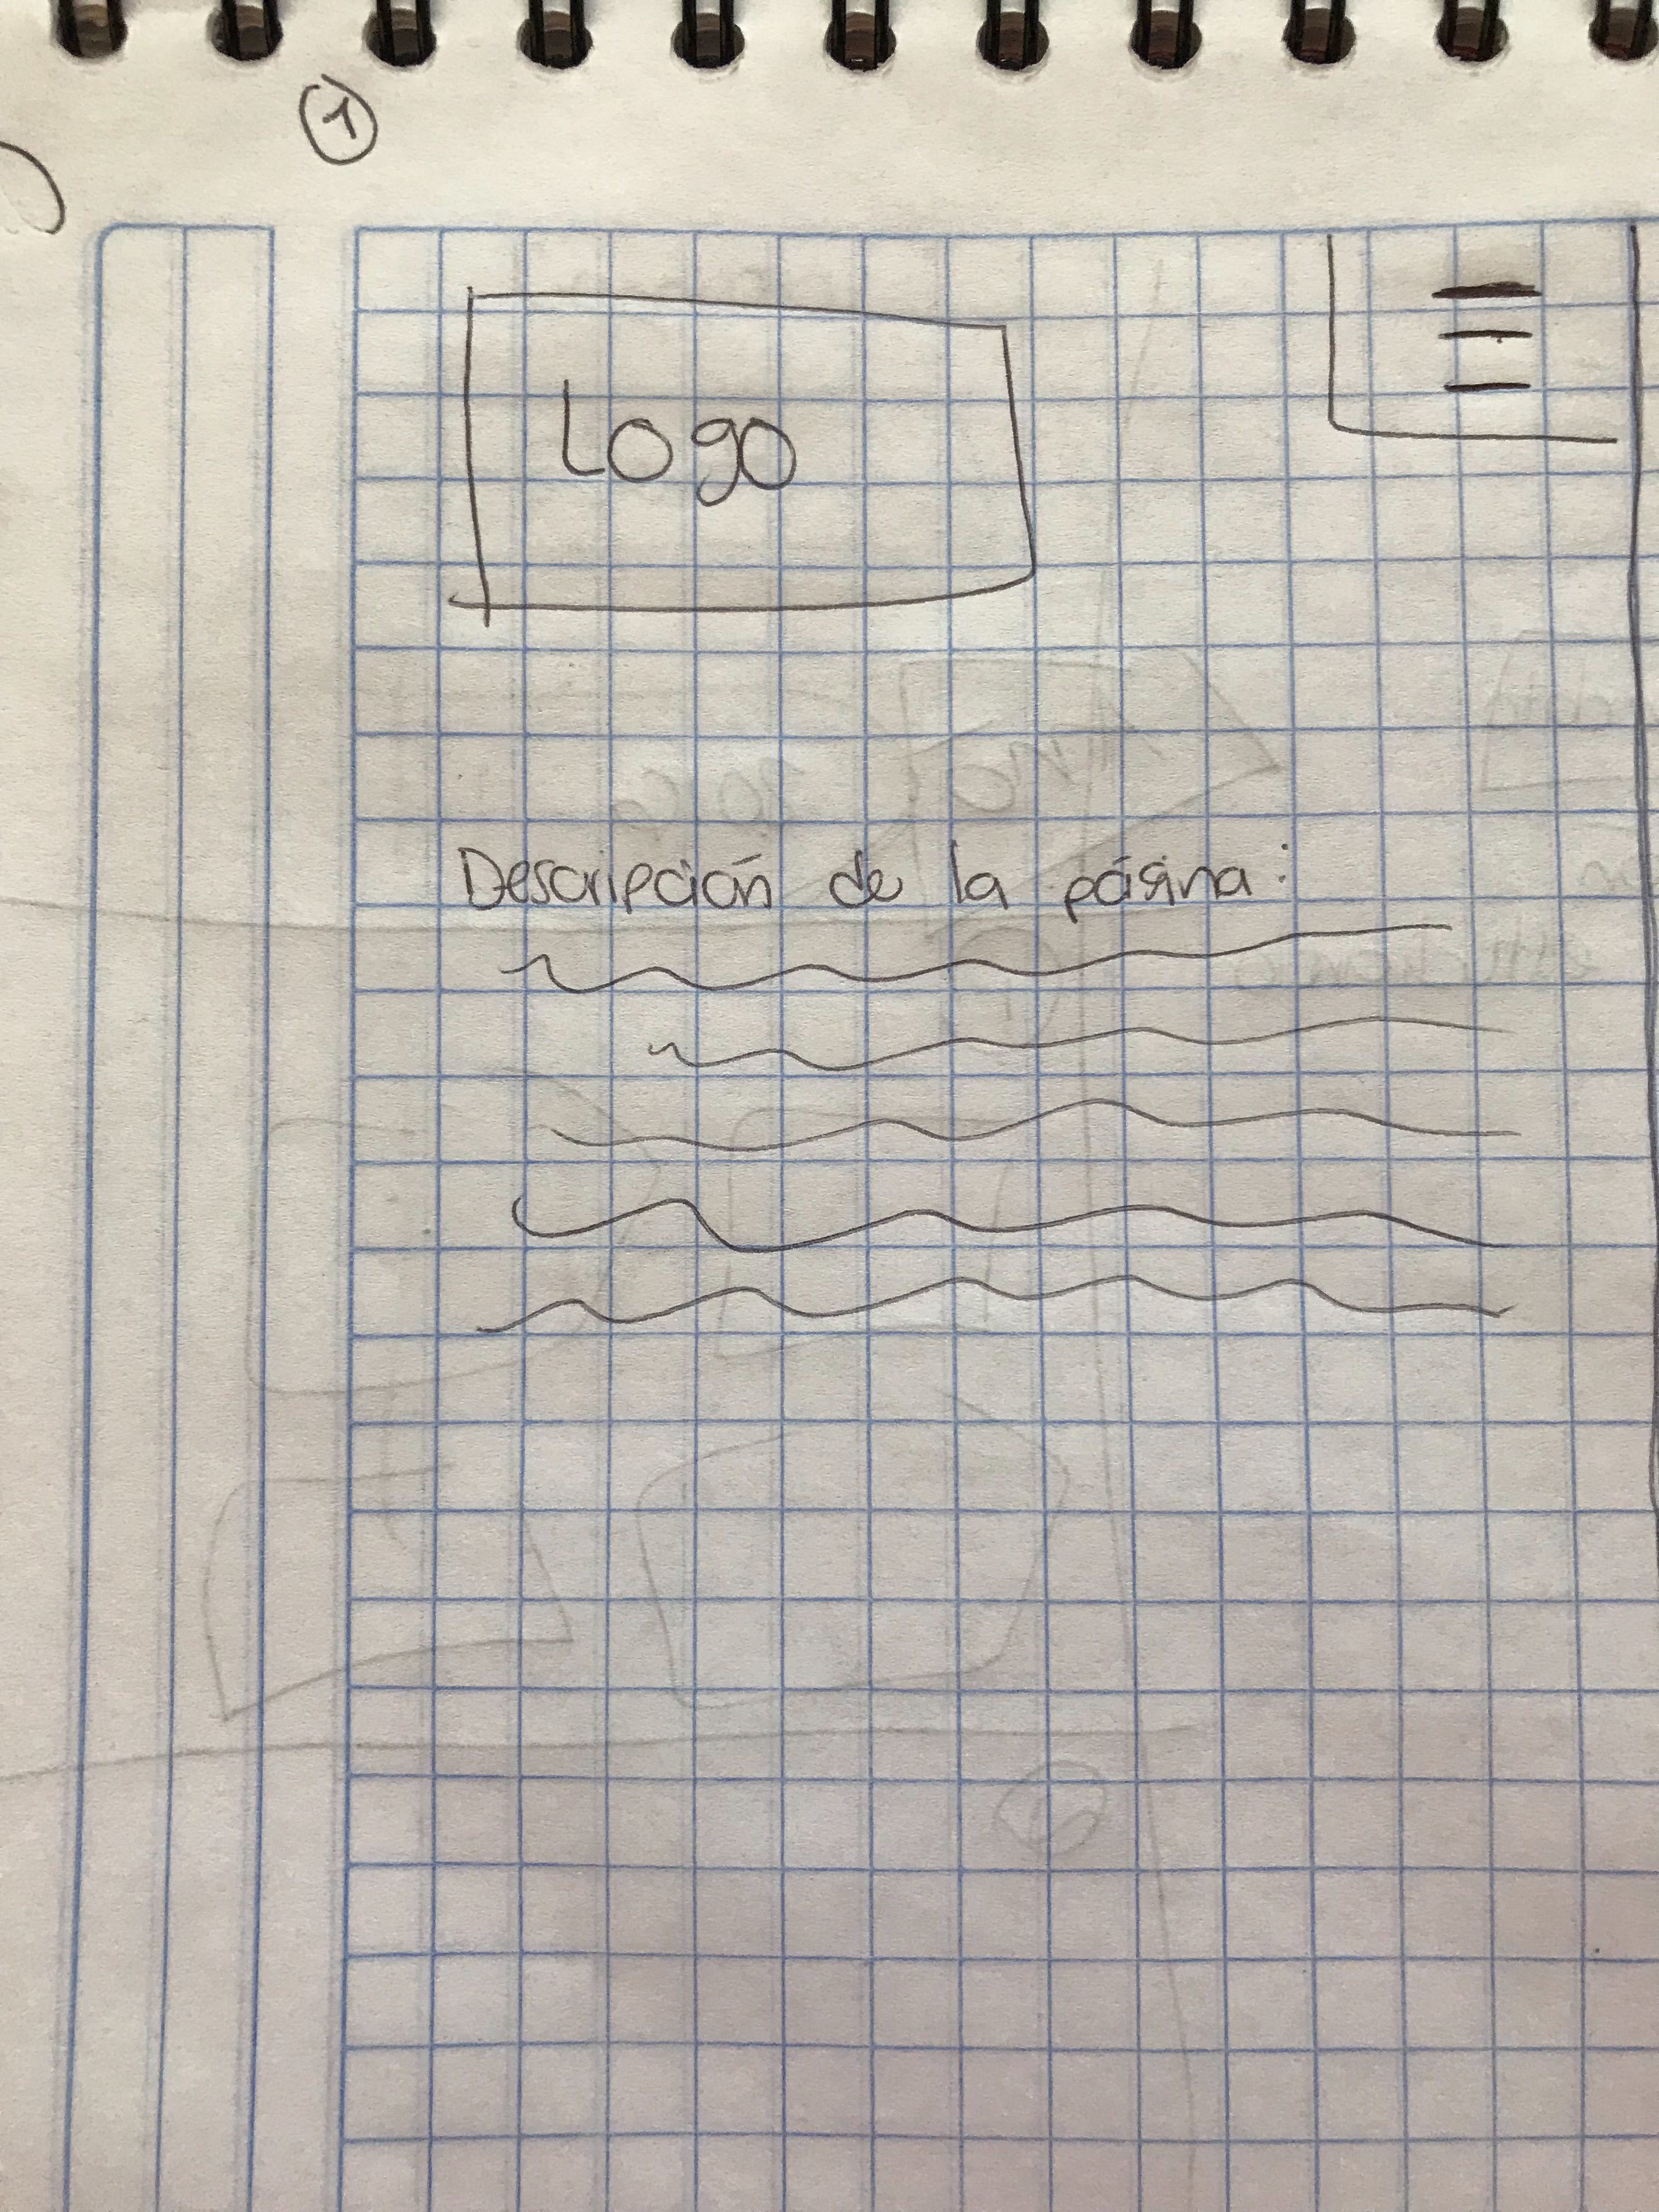 1
Logo
Descripción de la página: